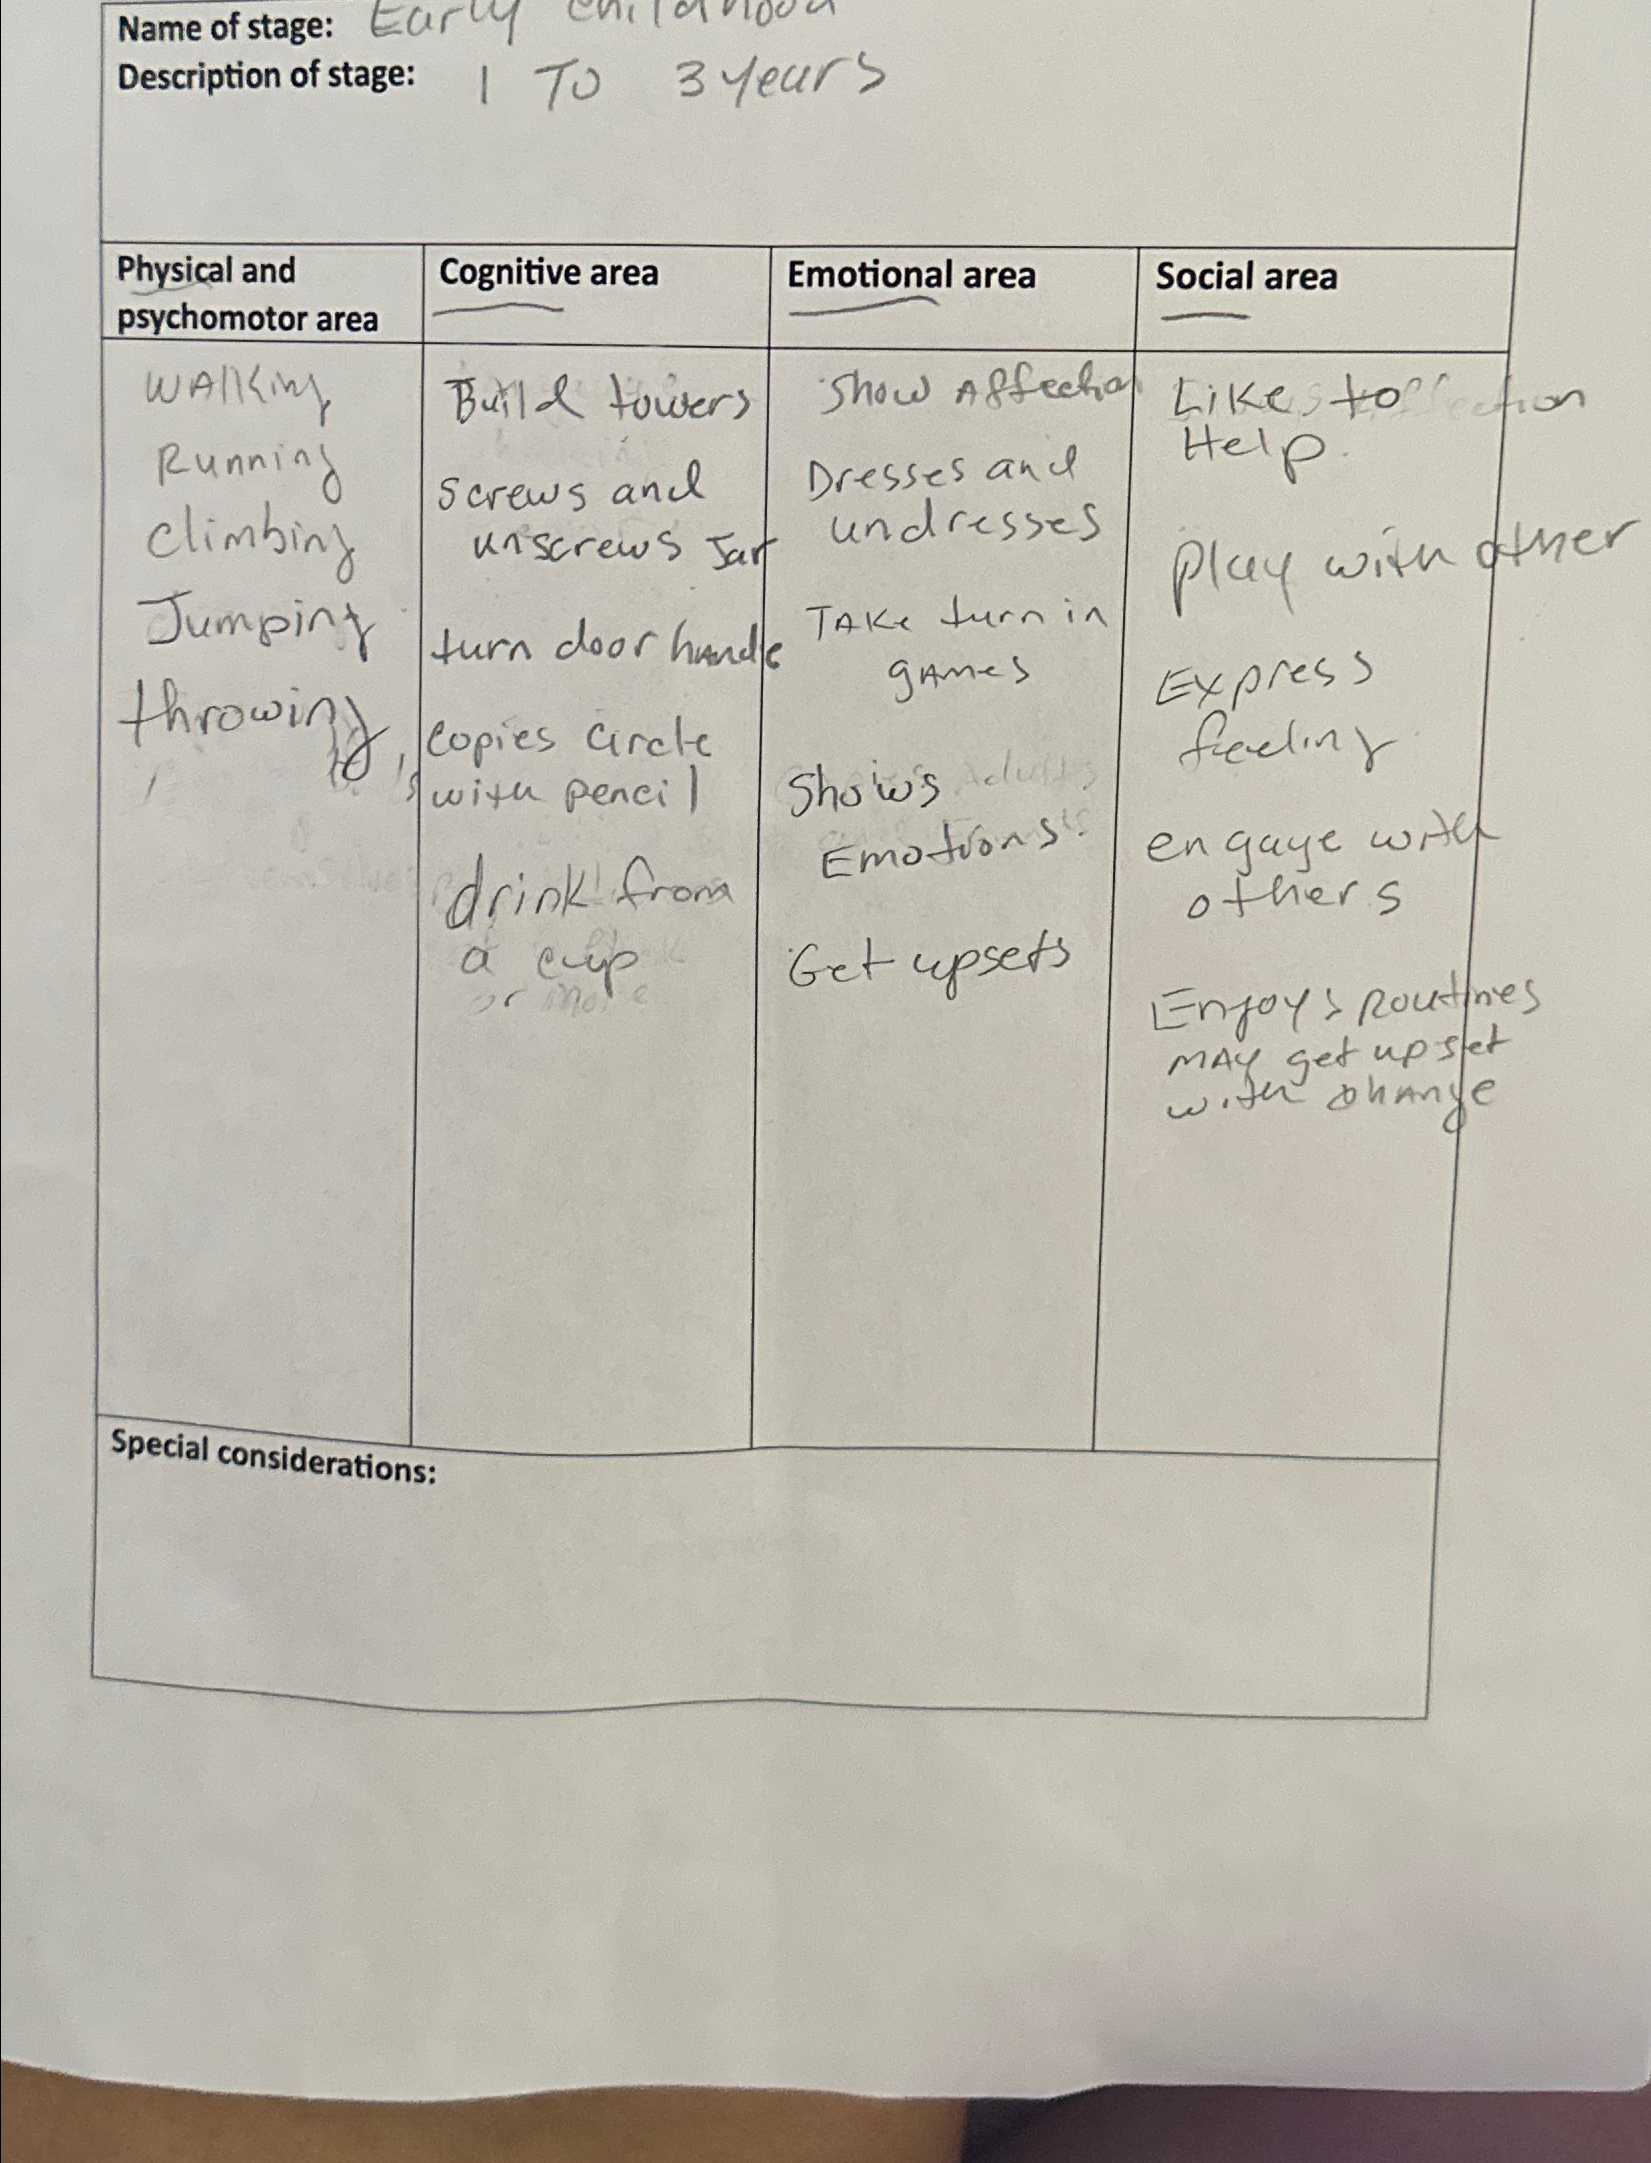 Name of stage: Early childhood
Description of stage: 1 To 3 years
Physical and
psychomotor area
Walking
Running
climbing
Jumping
throwing
Cognitive area
Build towers
screws and
unscrews Jar
turn door handle
copies circle
with pencil
drink from
a cup
or more
Emotional area
Show Affection
Dresses and
undresses
Take turn in
games
Shows
Emotions
Get upsets
Social area
Like to
Help.
play with other
Express
feeling
engage with
others
Enjoys Routines
may get upset
with change
Special considerations: